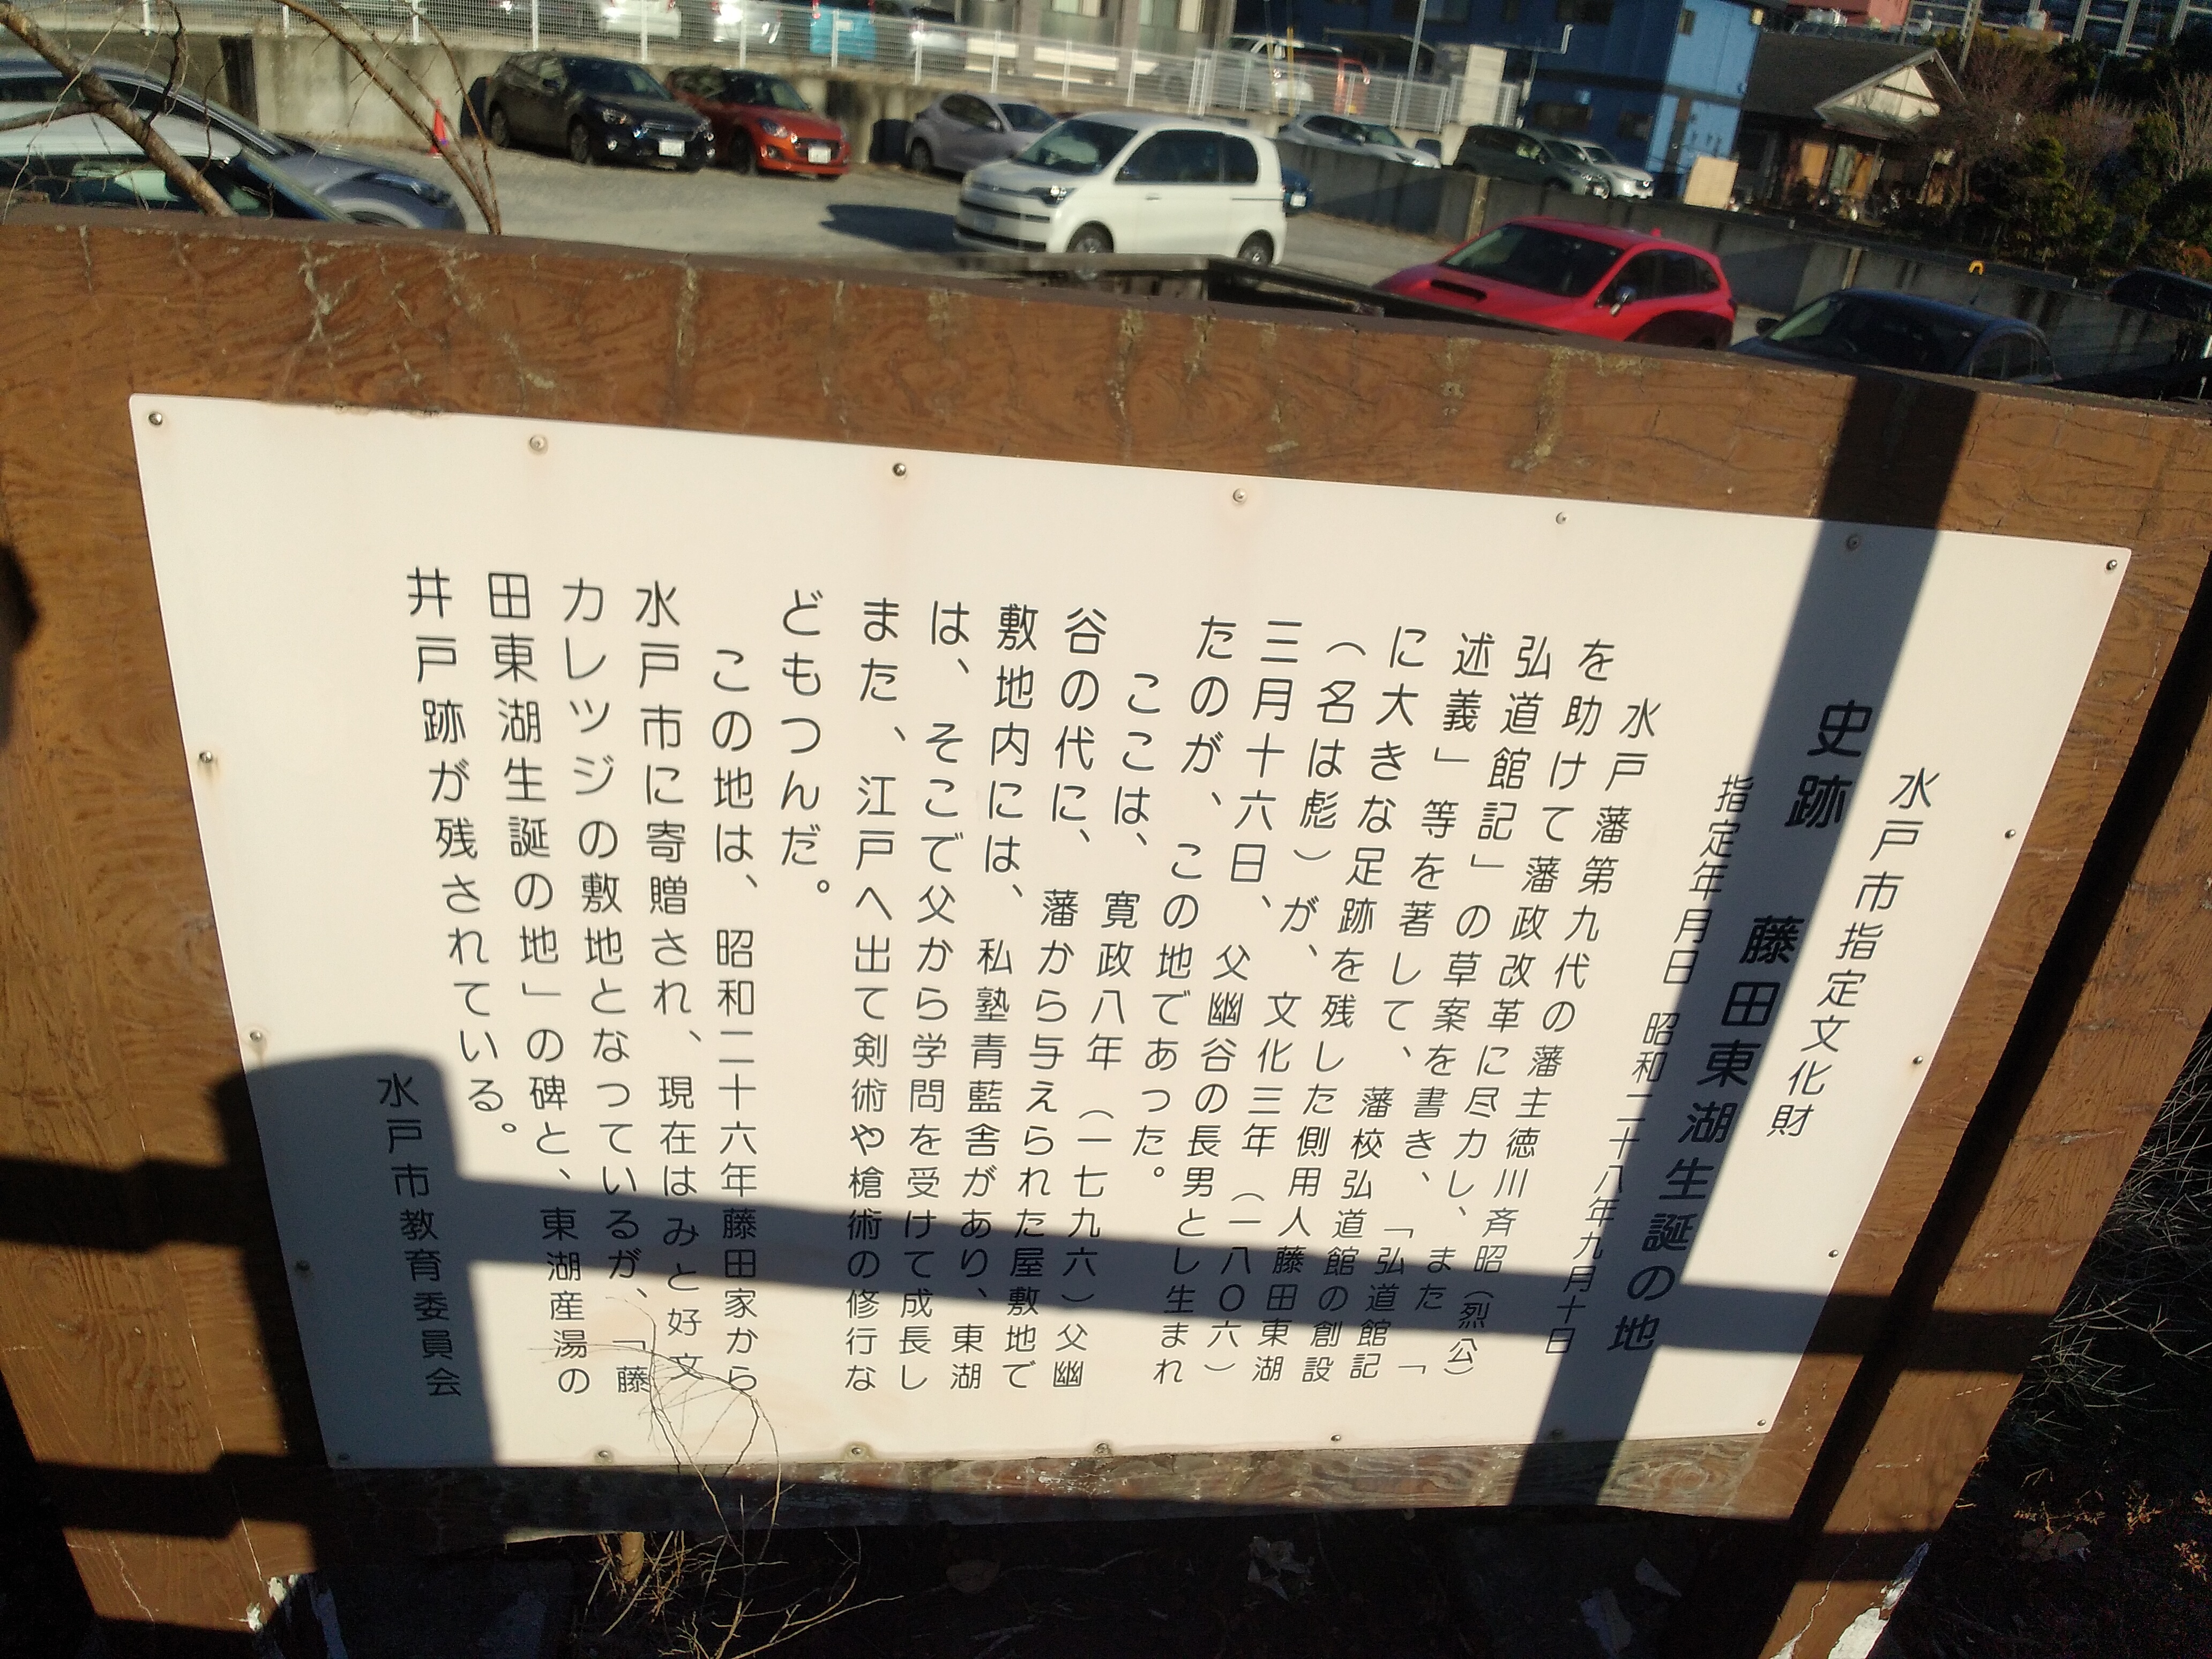 水戸市指定文化財
史跡　藤田東湖生誕の地
指定年月日　昭和二十八年九月十日
水戸藩第九代の藩主徳川斉昭（烈公）
を助けて藩政改革に尽力し、また
弘道館記」の草案を書き、「弘道館記「
述義」等を著して、藩校弘道館の創設
に大きな足跡を残した側用人藤田東湖
（名は彪）が、文化三年（一八〇六）
三月十六日、父幽谷の長男とし生まれ
たのが、この地であった。
ここは、寛政八年（一七九六）父幽
谷の代に、藩から与えられた屋敷地で
敷地内には、私塾青藍舎があり、東湖
は、そこで父から学問を受けて成長し
また、江戸へ出て剣術や槍術の修行な
どもつんだ。
この地は、昭和二十六年藤田家から
水戸市に寄贈され、現在はみと好文
カレッジの敷地となっているが、「藤
田東湖生誕の地」の碑と、東湖産湯の
井戸跡が残されている。
水戸市教育委員会